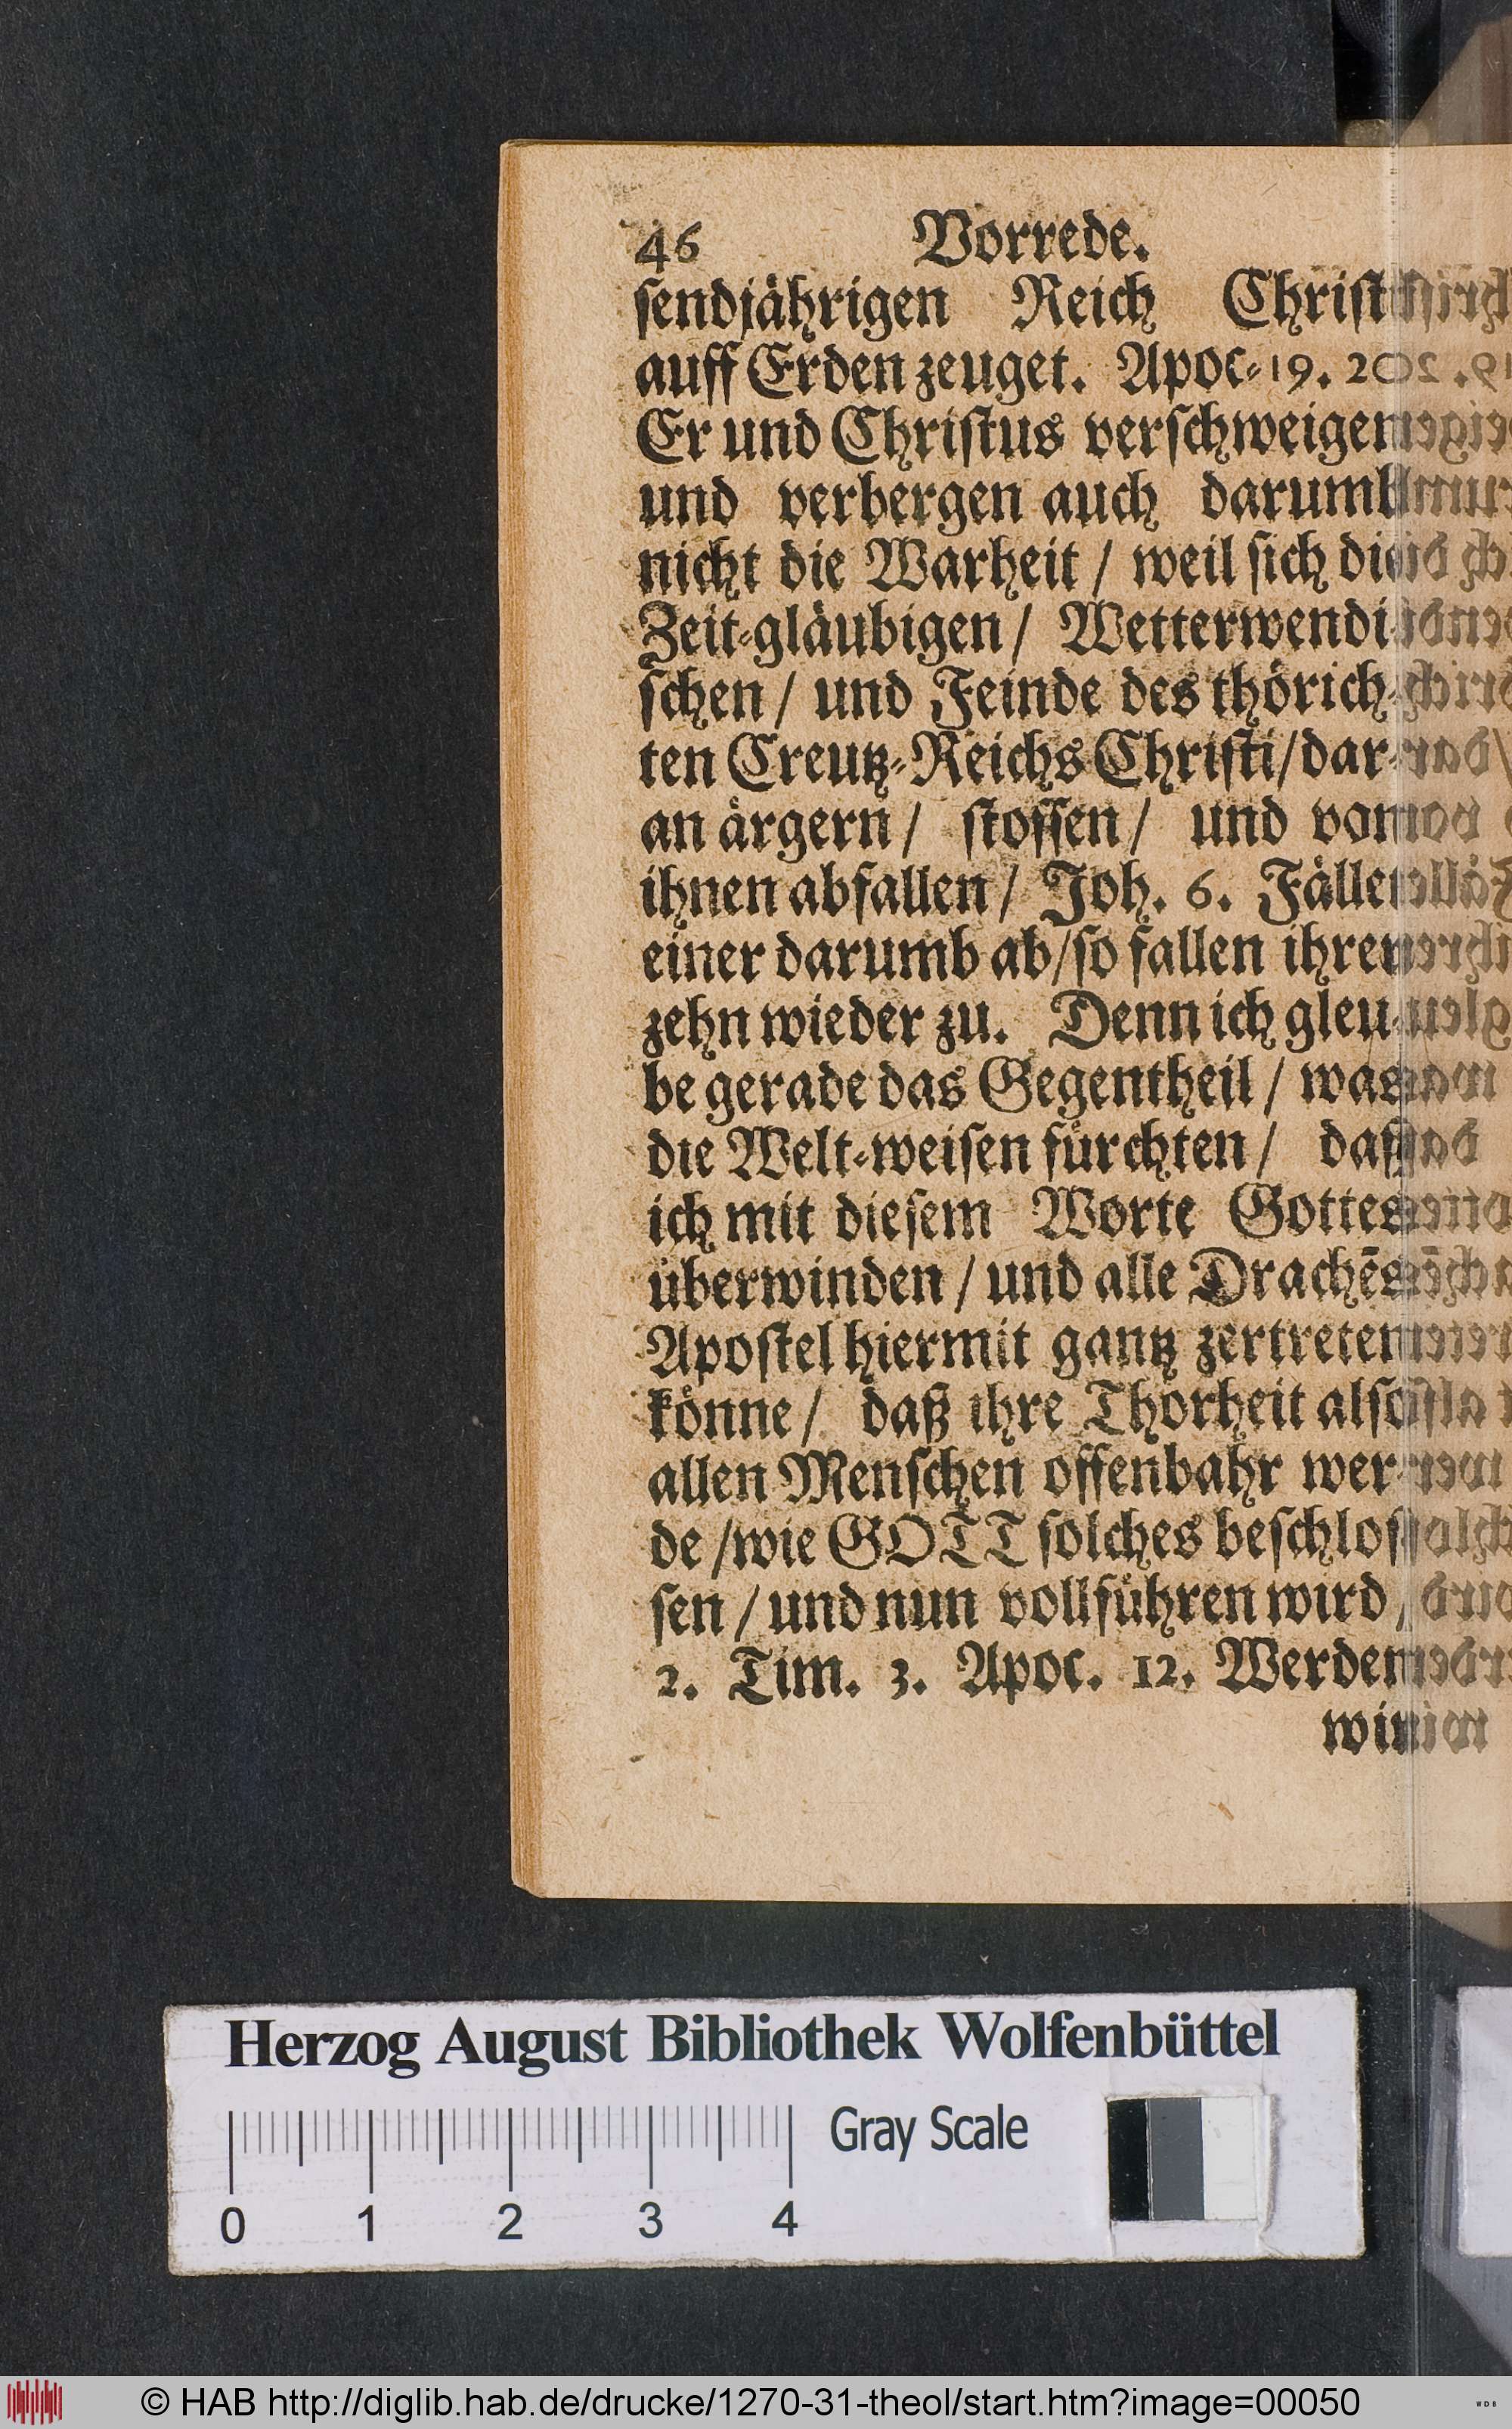 46 Vorrede.
sendjährigen Reich Christi
auff Erden zeuget. Apoc. 19. 20.
Er und Christus verschweigen
und verbergen auch darumb
nicht die Warheit / weil sich die
Zeit-gläubigen / Wetterwendi-
schen / und Feinde des thörich-
ten Creutz-Reichs Christi/dar-
an ärgern / stossen / und von
ihnen abfallen / Joh. 6. Fället
einer darumb ab/so fallen ihrer
zehn wieder zu. Denn ich gleu-
be gerade das Gegentheil / was
die Welt-weisen fürchten / daß
ich mit diesem Worte Gottes
überwinden / und alle Drachēs
Apostel hiermit gantz zertreten
könne / daß ihre Thorheit also
allen Menschen offenbahr wer-
de /wie GOTT solches beschlos-
sen / und nun vollführen wird /
2. Tim. 3. Apoc. 12. Werden
wir
Herzog August Bibliothek Wolfenbüttel
Gray Scale
0 1 2 3 4
© HAB http://diglib.hab.de/drucke/1270-31-theol/start.htm?image=00050
WDB